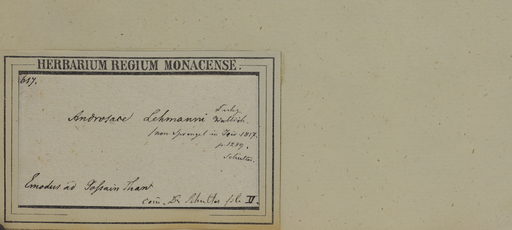 HERBARIUM REGIUM MONACENSE.
617.
Androsace Lehmanni Wallich.
(non Sprengel in Isis 1817.
p. 1289.
Schultes.
Emodus ad Gossain Than
com. Dr Schultes fil. II.